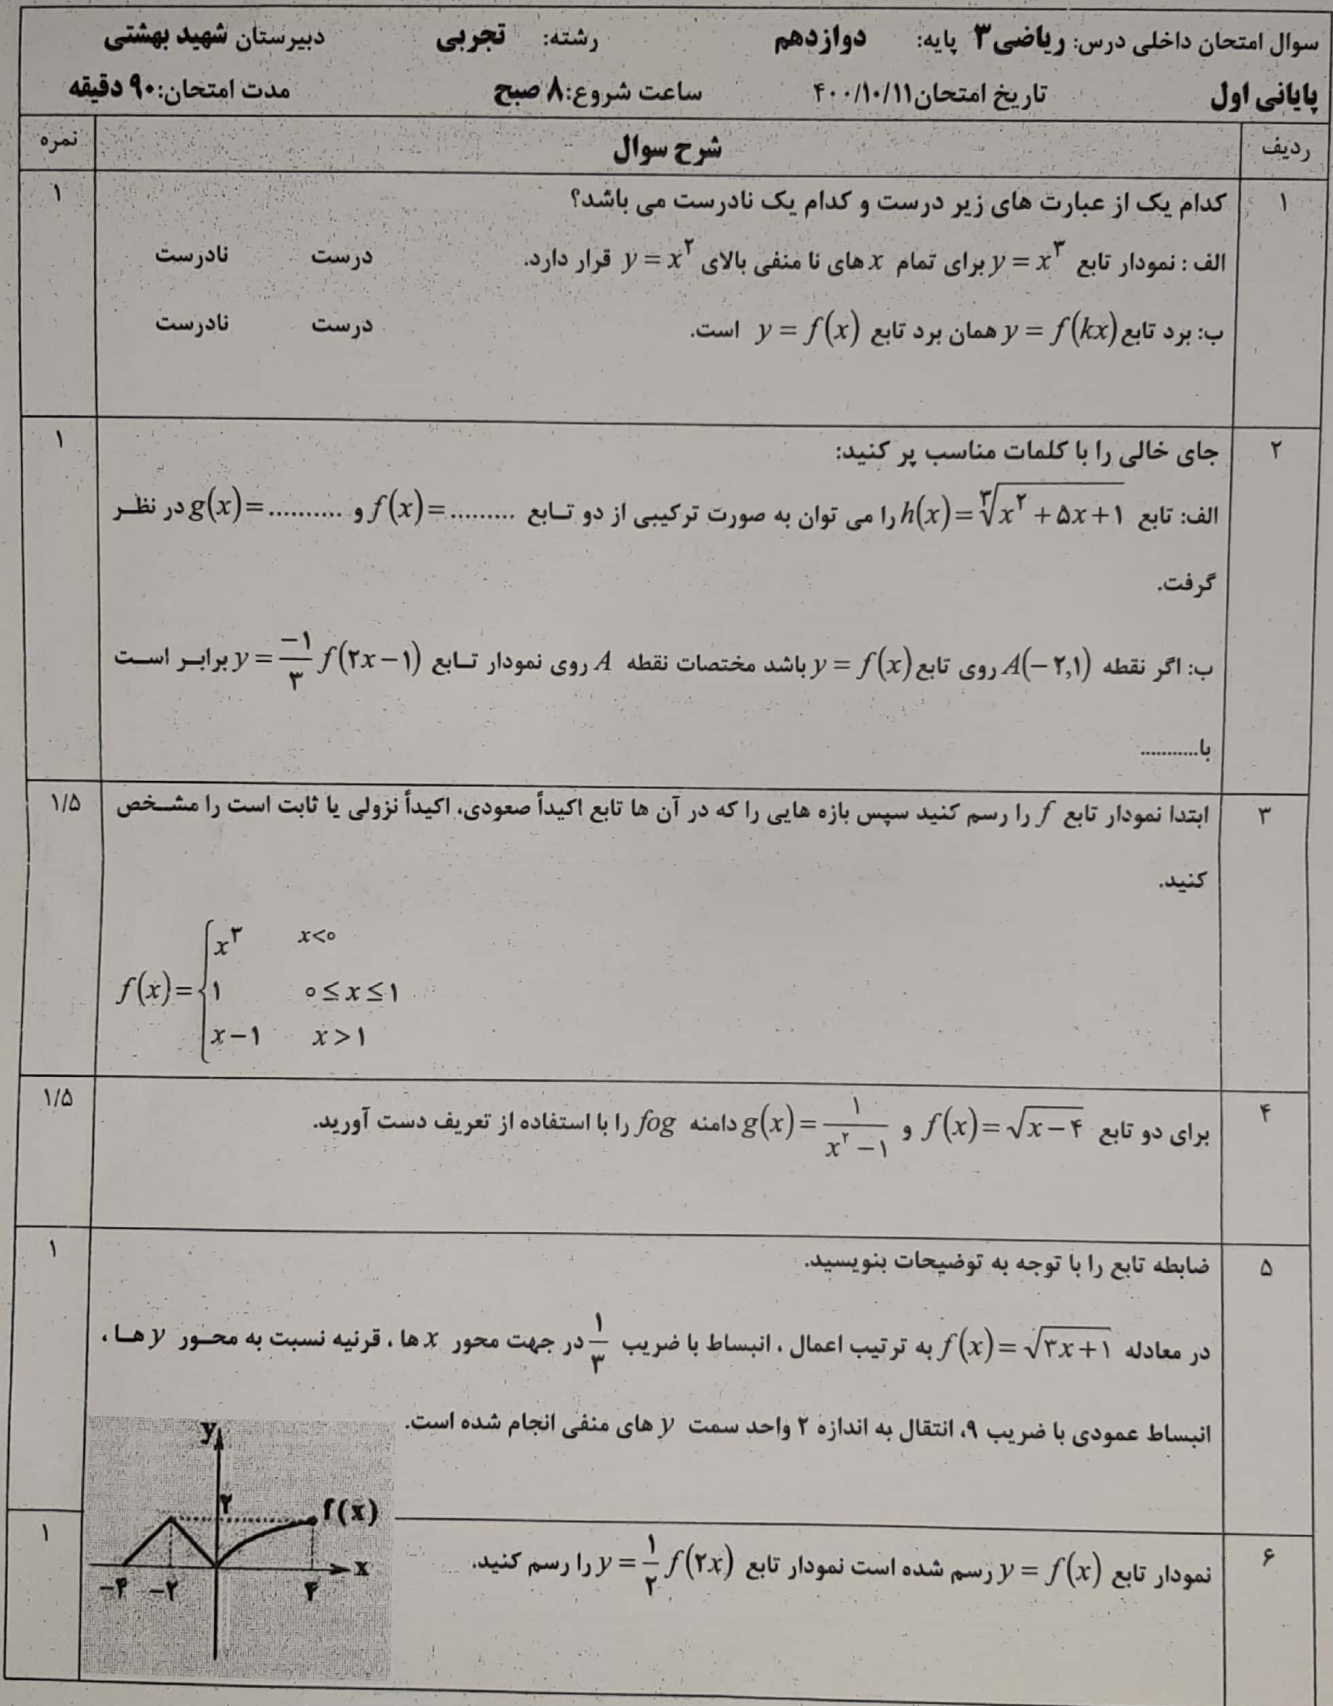 سوال امتحان داخلی درس: ریاضی۳ پایه: دوازدهم رشته: تجربی دبیرستان شهید بهشتی
پایانی اول تاریخ امتحان۴۰۰/۱۰/۱۱ ساعت شروع:۸ صبح مدت امتحان:۹۰ دقیقه
ردیف شرح سوال نمره
۱ کدام یک از عبارت های زیر درست و کدام یک نادرست می باشد؟ ۱
الف : نمودار تابع y = x^۳ برای تمام x های نا منفی بالای y = x^۲ قرار دارد. درست نادرست
ب: برد تابع y = f(kx) همان برد تابع y = f(x) است. درست نادرست
۲ جای خالی را با کلمات مناسب پر کنید: ۱
الف: تابع h(x) = ∛(x^۲ + ۵x + ۱) را می توان به صورت ترکیبی از دو تابع f(x) = ......... و g(x) = .......... در نظر
گرفت.
ب: اگر نقطه A(−۲,۱) روی تابع y = f(x) باشد مختصات نقطه A روی نمودار تابع y = −۱/۳ f(۲x − ۱) برابر است
با...........
۳ ابتدا نمودار تابع f را رسم کنید سپس بازه هایی را که در آن ها تابع اکیداً صعودی، اکیداً نزولی یا ثابت است را مشخص ۱/۵
کنید.
f(x) = { x^۳ x<۰
۱ ۰ ≤ x ≤ ۱
x − ۱ x > ۱
۴ برای دو تابع f(x) = √(x − ۴) و g(x) = ۱/(x^۲ − ۱) دامنه fog را با استفاده از تعریف دست آورید. ۱/۵
۵ ضابطه تابع را با توجه به توضیحات بنویسید. ۱
در معادله f(x) = √(۳x + ۱) به ترتیب اعمال ، انبساط با ضریب ۱/۳ در جهت محور x ها ، قرنیه نسبت به محور y ها ،
انبساط عمودی با ضریب ۹، انتقال به اندازه ۲ واحد سمت y های منفی انجام شده است.
۶ نمودار تابع y = f(x) رسم شده است نمودار تابع y = ۱/۲ f(۲x) را رسم کنید. ۱
y
۲ f(x)
x
−۴ −۲ ۴